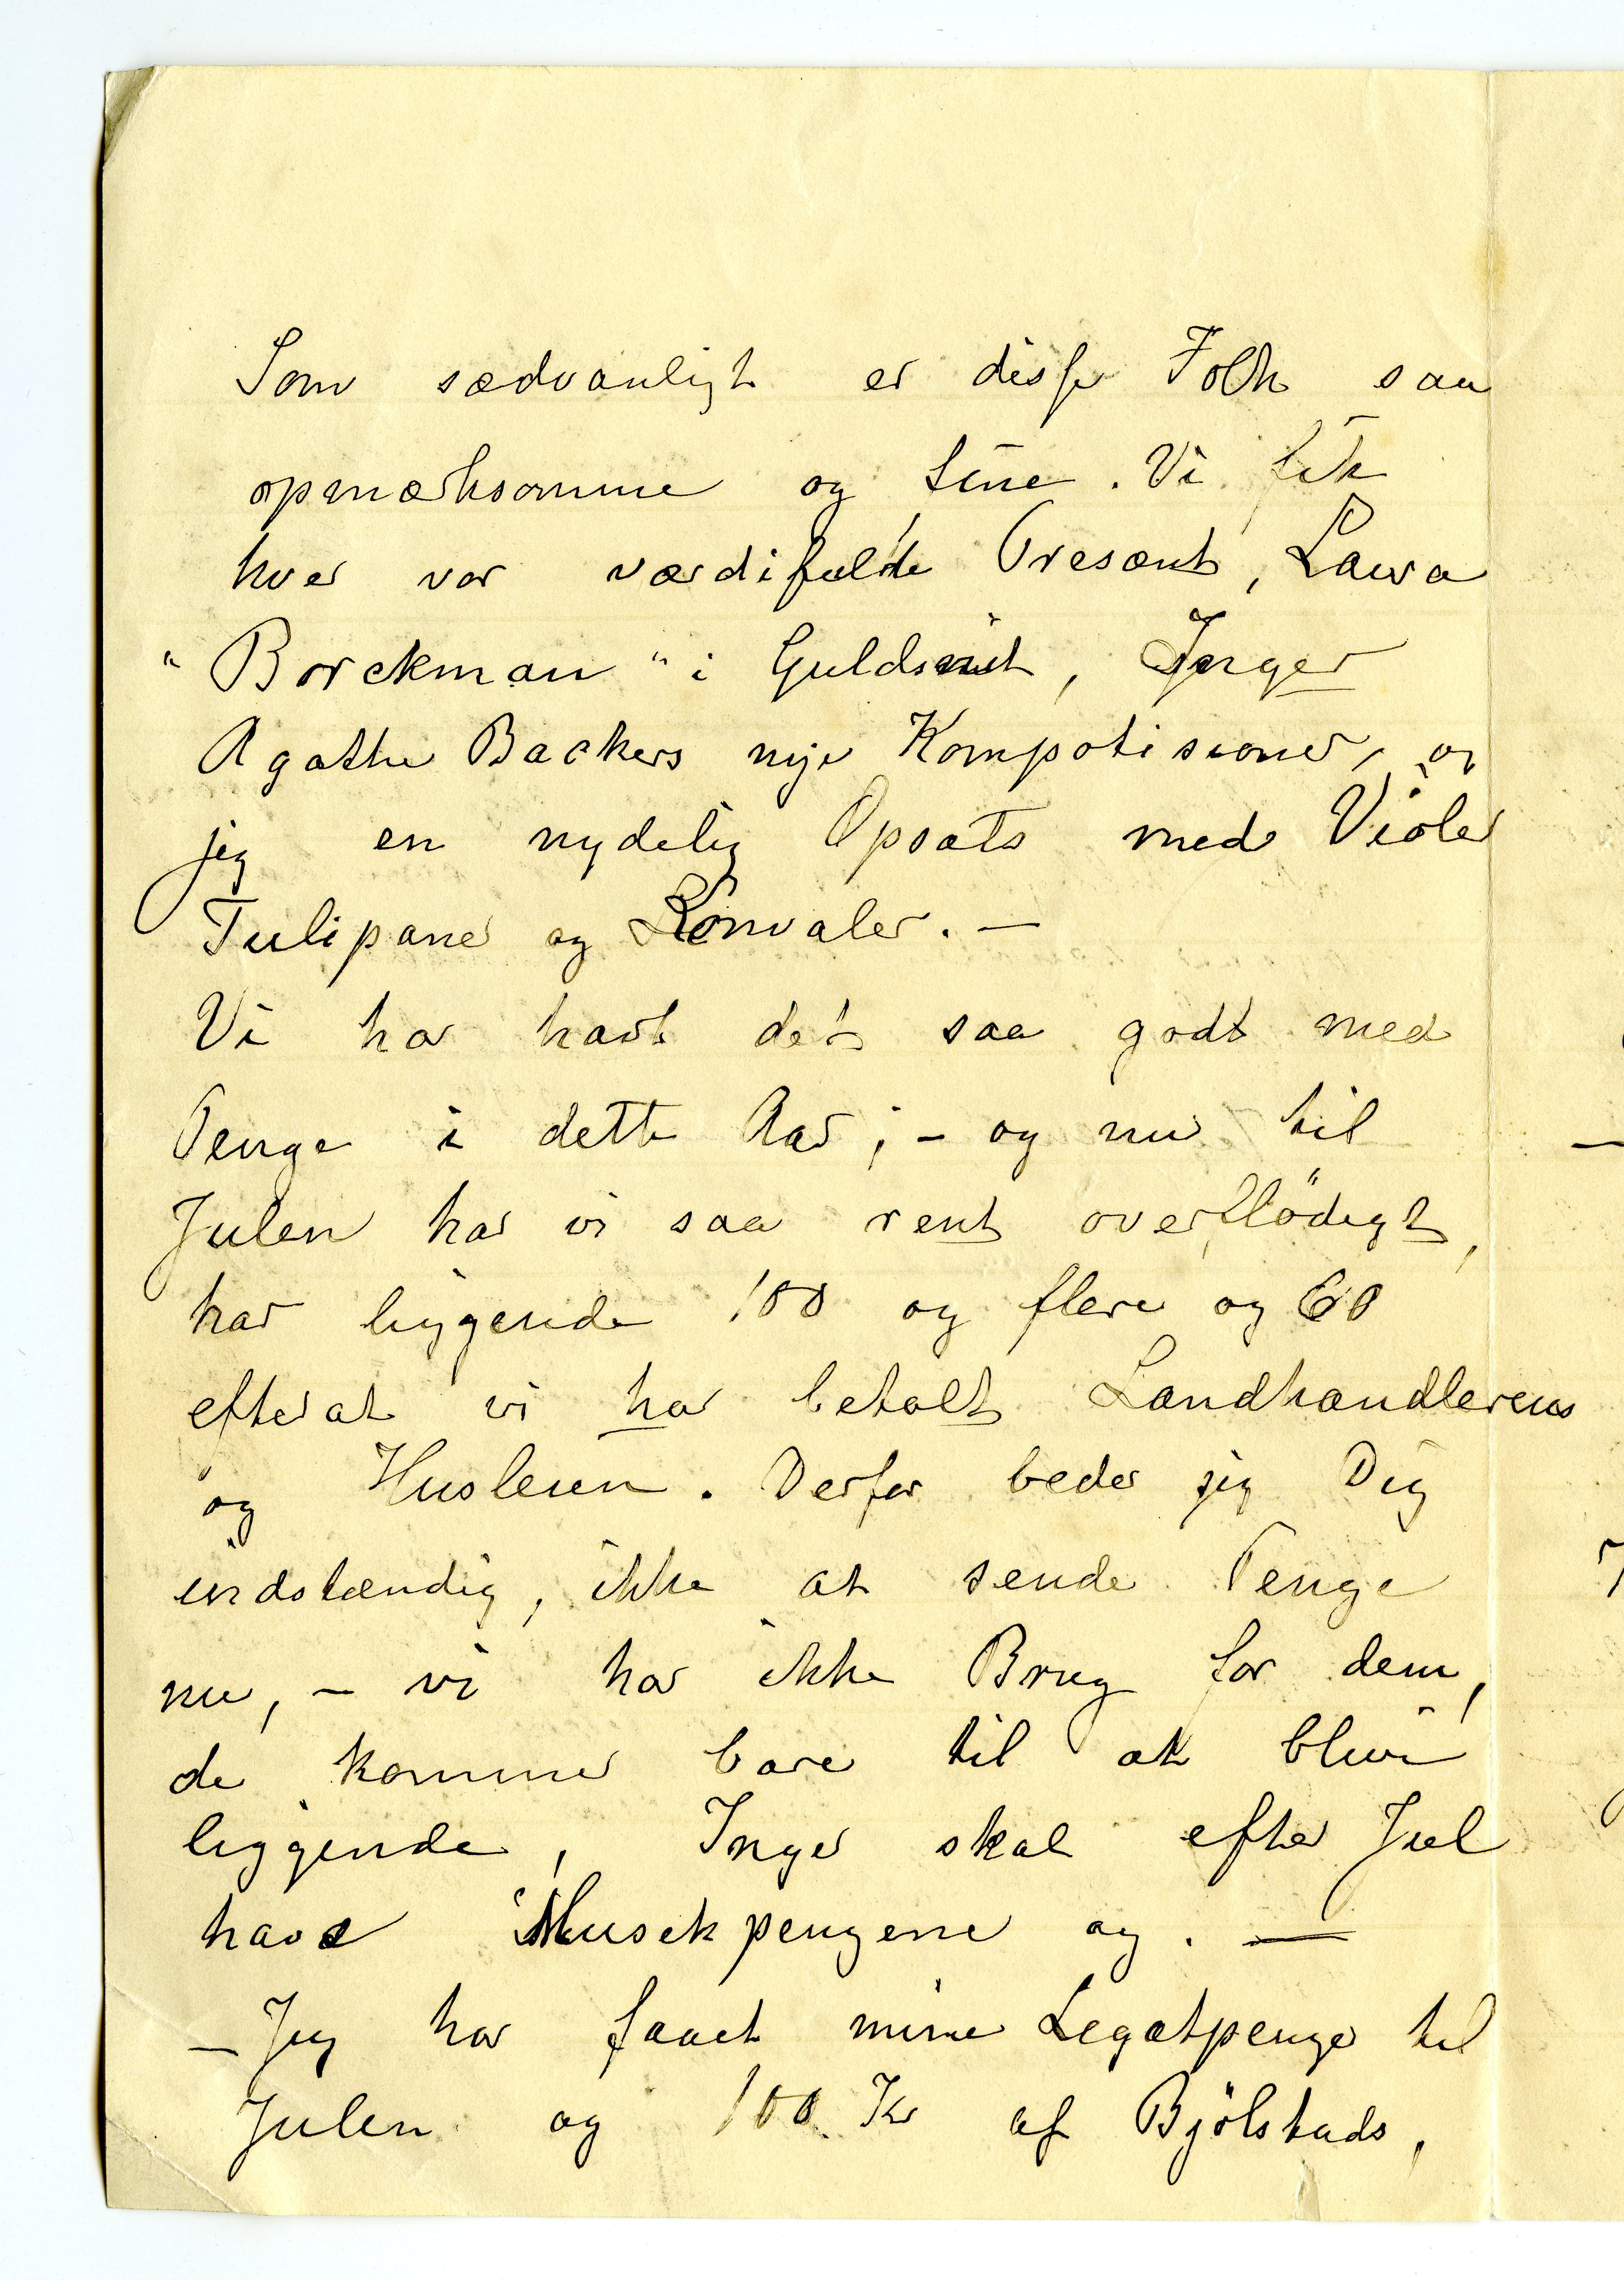 Som sædvanligt er disse Folk saa
opmærksomme og fine. Vi fik
hver vor værdifulde Presant, Laura
"Borckman" i Guldsnit, Inger
Agathe Backers nye Kompotisioner, og
jeg en nydelig Opsats med Violer
Tulipaner og Konvaler. —
Vi har havt det saa godt med
Penge i dette Aar; – og nu til
Julen har vi saa rent overflödigt,
har liggende 100 og flere og 60
efterat vi har betalt Landhandlerens
og Husleien. Derfor beder jeg Dig
indstændig, ikke at sende Penge
nu, – vi har ikke Brug for dem,
de kommer bare til at blive
liggende, Inger skal efter Jul
have Musekpengene og. —
– Jeg har faaet mine Legatpenge til
Julen og 100 Kr af Bjölstads,